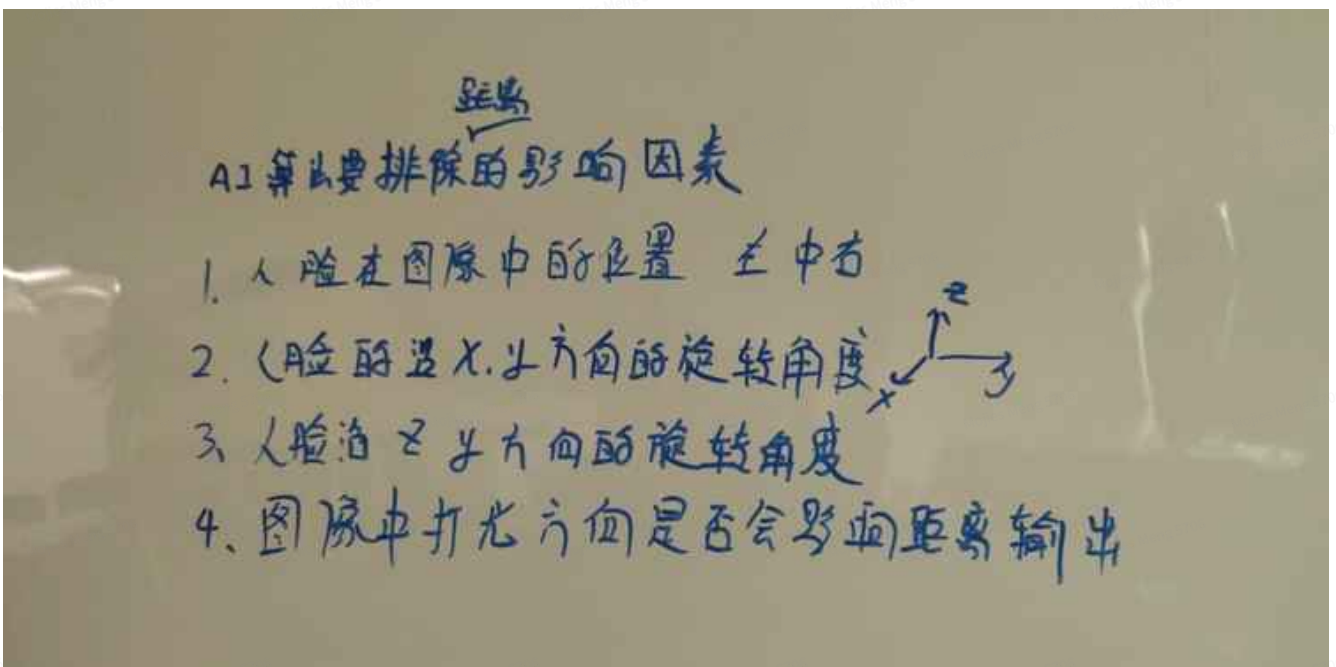 距离
AI算法要排除的影响因素
1. 人脸在图像中的位置 左中右
2. 人脸的沿X.y方向的旋转角度
z
x
y
3、人脸沿z y方向的旋转角度
4、图像中打光方向是否会影响距离输出